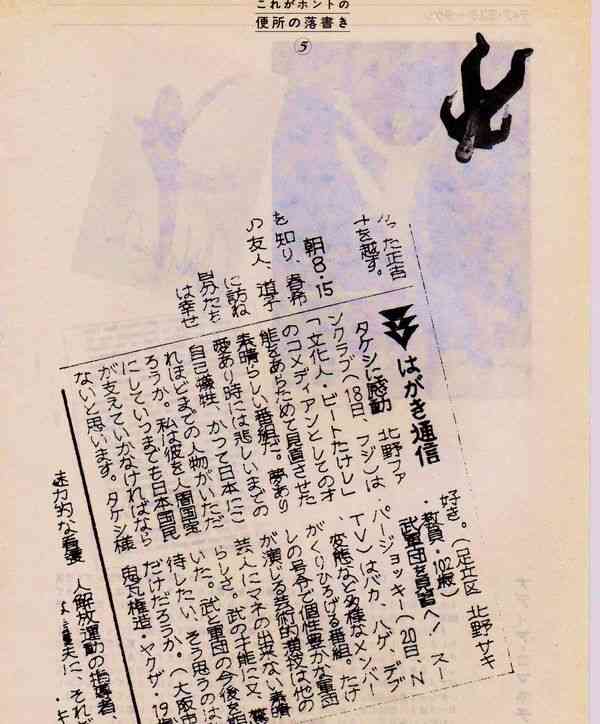 これがホントの
便所の落書き
⑤
った正吉
十を越す。
朝8・15
を知り、春希
の友人、道子
に訪ね
自分たち
は幸せ
はがき通信
タケシに感動 北野ファ
ンクラブ(18日、フジ)は、
「文化人・ビートたけし」
のコメディアンとしてのオ
能をあらためて見直させた
素晴らしい番組だ。夢あり
愛あり時には悲しいまでの
自己犠牲、かつて日本にこ
れほどまでの人物がいただ
ろうか。私は彼を人間国宝
にしていつまでも日本国民
が支えていかなければなら
ないと思います。タケシ様
好き。(足立区 北野サキ
・教員・102歳)
武軍団を見習へ! スー
パージョッキー(20日・N
TV)はバカ、ハゲ、デブ
、変態など多様なメンバー
がくりひろげる番組。たけ
しの号令で個性豊かな軍団
が演じる芸術的演技は他の
芸人にマネの出来ない素晴
らしさ。武の才能に又、驚
いた。武と軍団の今後を期
待したい。そう思うのは
だけだろうか。(大阪市
鬼瓦権造・ヤクザ・19歳
魅力的な看護
人解放運動の指導者、
夫に、それ